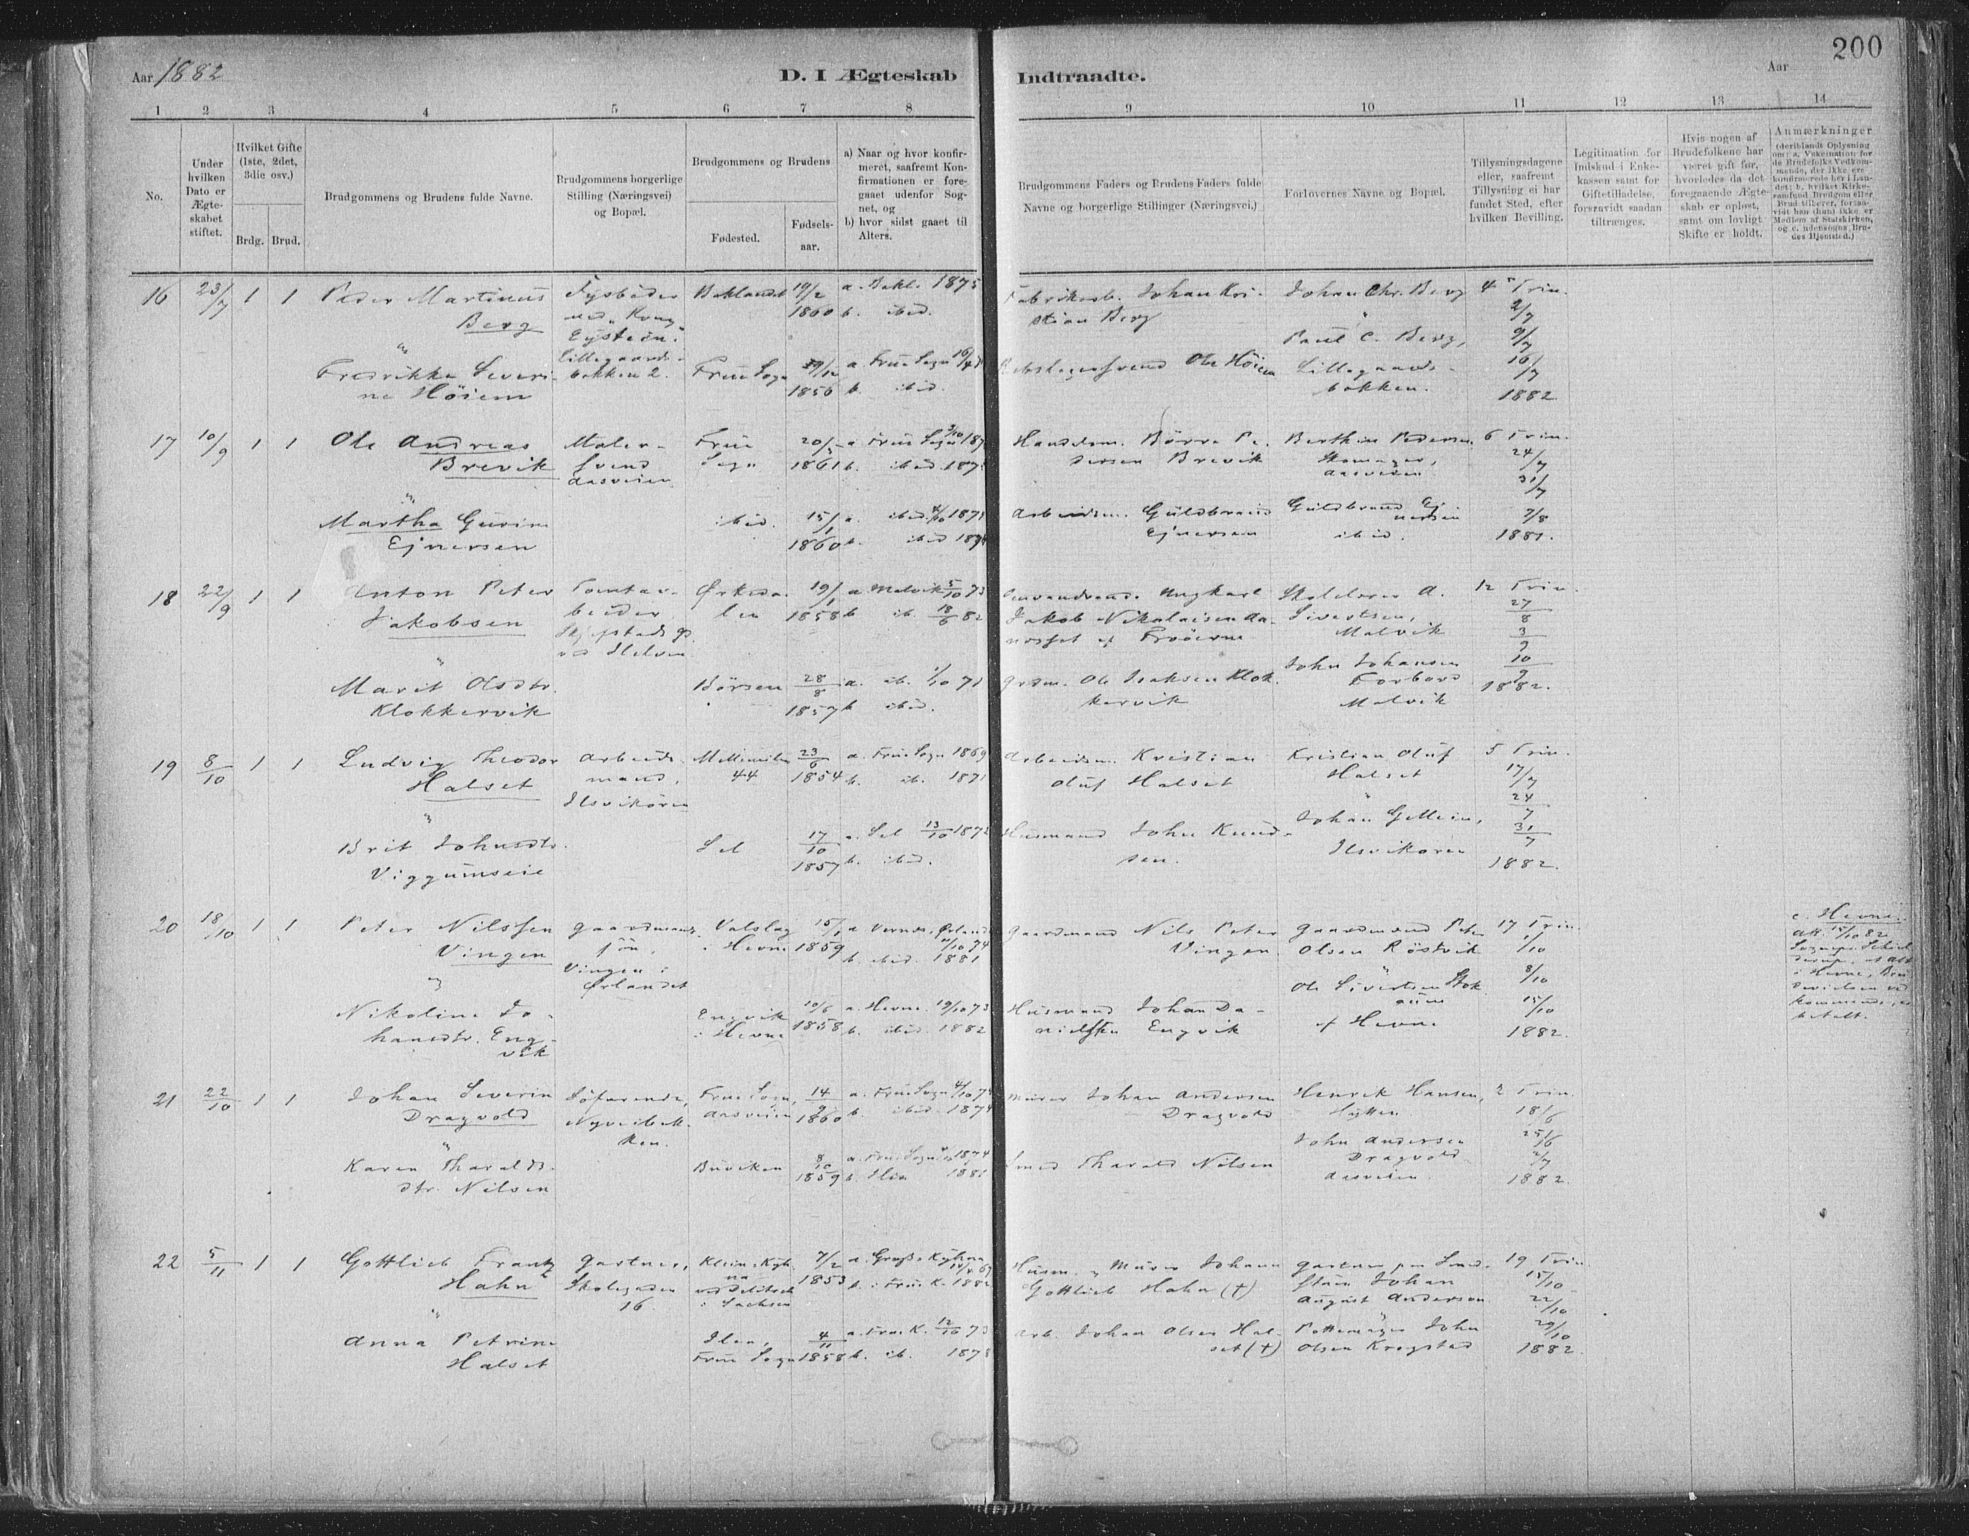 Aar 1882
D. I Ægteskab
Indtraadte.
Aar
200
1 2 3 4 5 6 7 8
9 10 11 12 13 14
No.
Under
hvilken
Dato er
Ægte-
skabet
stiftet.
Hvilket Gifte
(1ste, 2det,
3die osv.)
Brdg. Brud.
Brudgommens og Brudens fulde Navne.
Brudgommens borgerlige
Stilling (Næringsvei)
og Bopæl.
Brudgommens og Brudens
Fødested.
Fødsels-
aar.
a) Naar og hvor konfir-
meret, saafremt Kon-
firmationen er fore-
gaaet udenfor Sog-
net, og
b) hvor sidst gaaet til
Alters.
Brudgommens Faders og Brudens Faders fulde
Navne og borgerlige Stillinger (Næringsvei.)
Forlovernes Navne og Bopæl.
Tillysningsdagene
eller, saafremt
Tillysning ei har
fundet Sted, efter
hvilken Bevilling.
Legitimation for
Indskud i Enke-
kassen samt for
Giftetilladelse,
forsaavidt saadan
tiltrænges.
Hvis nogen af
Brudefolkene har
været gift før,
hvorledes da det
foregaaende Ægte-
skab er opløst,
samt om lovligt
Skifte er holdt.
Anmærkninger
(deriblandt Oplysning
om: a. Vakcination for
de Brudefolks Vedkom-
mende, der ikke ere
konfirmerede her i Lan-
det; b. hvilket Kirke-
samfund Brudgom eller
Brud tilhører, forsaa-
vidt han (hun) ikke er
Medlem af Statskirken,
og c. udensogns Bru-
des Hjemsted.)
16 23/7 1 1 Peder Martinus
Berg
Fyrbøder
ved "Kong
Eystein".
Lillegaards-
bakken 2.
Baklandet 19/2
1860
a. Bakl. 1875
b. ibid.
Fabrikarb. Johan Kri-
stian Berg
Johan Chr. Berg
"
Paul C. Berg,
Lillegaards-
bakken.
4 Trin.
2/7
9/7
16/7
1882
"
Fredrikke Severi-
ne Höiem
Frue Sogn
1856
a Frue Sogn
b. ibid.
Rebslagersvend Ole Höiem
17 10/9 1 1 Ole Andreas
Brevik
Maler-
svend
Aasveien
Frue
Sogn
1861
a Frue Sogn
b. ibid.
Handelsm. Börre Pe-
dersen Brevik
Berthin Pedersen
Skomager,
Aasveien
6 Trin.
24/7
31/7
7/8
1881.
"
Martha Gurine
Ejnersen
ibid. 15/1
1860
a. ibid.
b. ibid
Arbeidsm. Guldbrand
Ejnersen
Guldbrand Ej-
nersen
ibid.
18 22/9 1 1 Anton Peter
Jakobsen
Tomtar-
beider
Ørkeda-
len
19/1
1858
a Malvik 5/10 73
b ib. 18/6 82
Ungkarl
Jakob Nikolaisen
Skolelærer A.
Sivertsen,
Malvik
12 Trin.
27/8
3/9
10/9
1882.
"
Marit Olsdtr.
Klokkervik
Börsen 28/8
1857
a. ib. 1/10 71
b ibid.
Grdm. Ole Isaksen Klok-
kervik
John Johansen
Forbord
Malvik
19 8/10 1 1 Ludvig Theodor
Halset
Arbeids-
mand,
Ilsvikören
Mellemilen
44
23/6
1854
a. Frue Sogn 1869
b. ib. 1871
Arbeidsm. Kristian
Oluf Halset
Kristian Oluf
Halset
5 Trin.
17/7
24/7
31/7
1882.
"
Brit Johnsdtr.
Viggumseie
Sel 17/10
1857
a. Sel 13/10 1872
b. ibid.
Husmand John Knud-
sen.
Johan Gellein,
Ilsvikoren
20 18/10 1 1 Peter Nilssen
Vingen
Gaardmands-
sön,
Vingen i
Ørlandet
Valslag
i Hevne
15/1
1859
a Vernes, Ørland
b. ibid. 1881
Gaardmand Nils Peter
Vingen
Gaardmand Peter
Olsen Röstvik
17 Trin.
1/10
8/10
15/10
1882.
c. Hevne.
Att. 15/10 82
"
Nikoline Jo-
hansdtr. Eng-
vik
Engvik
i Hevne
10/6
1858
a. Hevne. 19/10 73
b. ibid. 1882
Husmand Johan Da-
nielsen Engvik
Ole Sivertsen Stok-
aune
af Hevne
21 22/10 1 1 Johan Severin
Dragvold
Söfarende,
Nyveibak-
ken.
Frue Sogn,
Aasveien
14/9
1860
a. Frue Sogn 4/10 74
b ibid. 1874
Murer Johan Andersen
Dragvold
Henrik Hansen,
Hytten
2 Trin.
18/6
25/6
2/7
1882.
"
Karen Tharalds-
dtr. Nilsen
Buviken 8/10
1859
a. Frue Sogn 1874
b. Ilen 1881
Smed Tharald Nilsen
John Andersen
Dragvold
Aasveien.
22 5/11 1 1 Gottlieb Frantz
Hahn
Gartner,
Skolegaden
16.
Klein-Kyh-
na
ved Delitsch
i Sachsen
7/2
1853
a. Groß-Kyhna
b. i Frue K. 1882
Husm. og Murer Johann
Gottlieb Hahn (†)
Gartner paa Smed-
stuen Johan
August Anderson
19 Trin
15/10
22/10
29/10
1882.
"
Anna Petrine
Halset
Ilen,
Frue Sogn
4/11
1858
a. Frue K. 12/10 73
b. ib. 1878
Arb. Johan Olsen Hal-
set (†)
Pottemager John
Olsen Krogstad